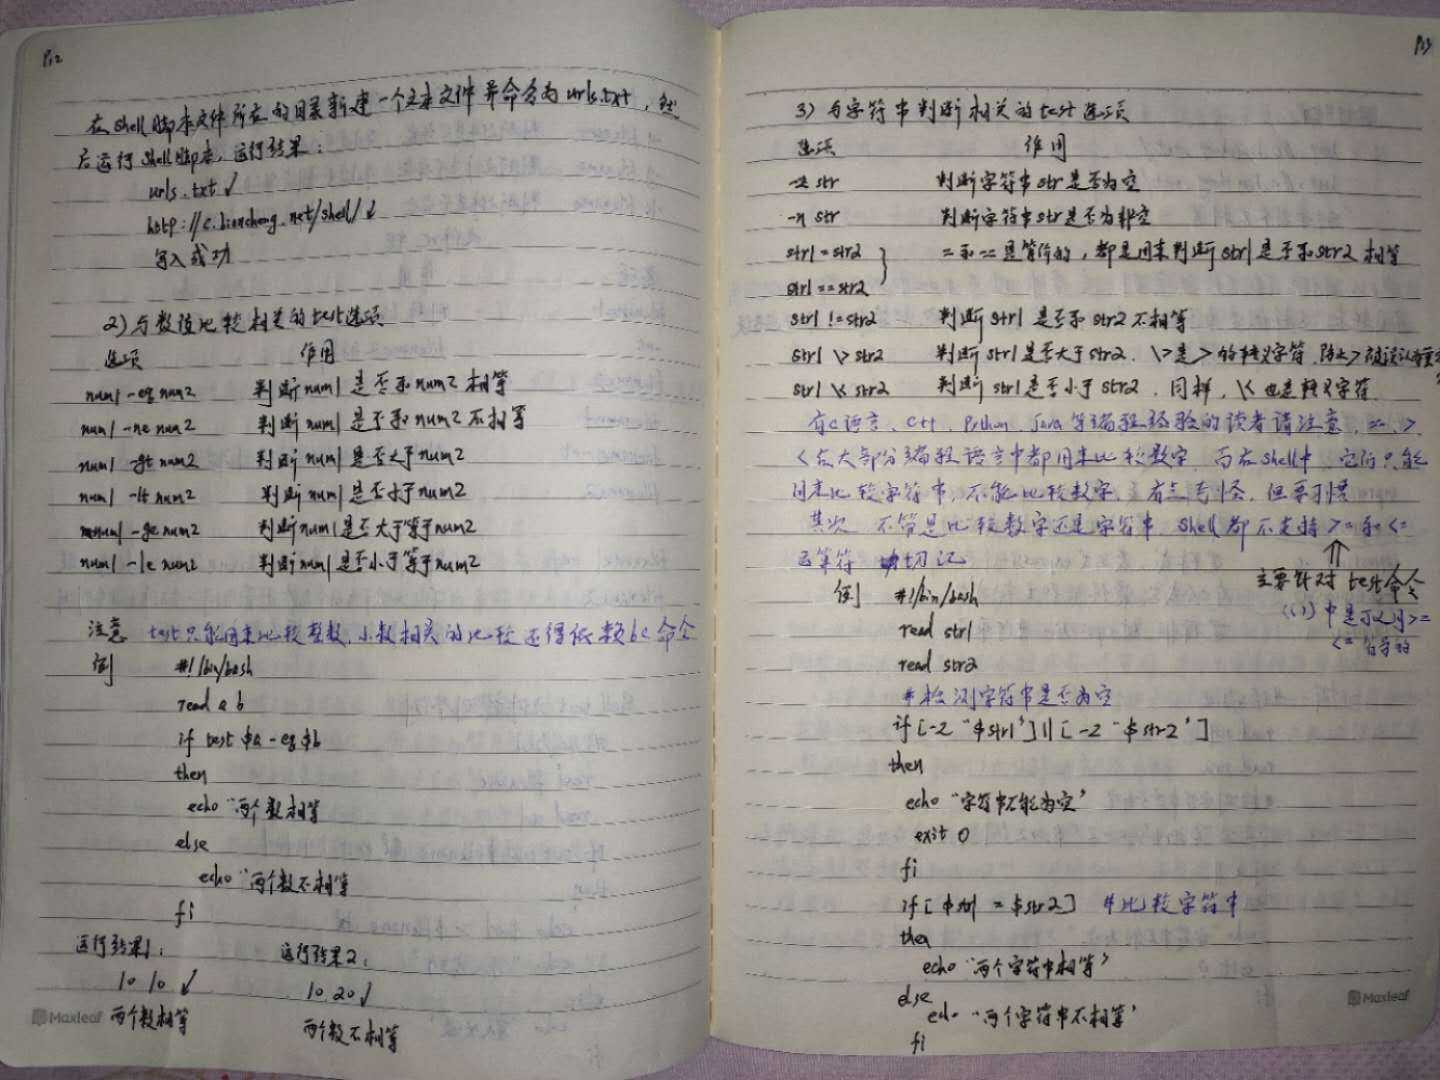 P12
在shell脚本文件所在的目录新建一个文本文件并命名为urls.txt，然
后运行shell脚本，运行结果：
urls.txt↙
http://c.biancheng.net/shell/↙
写入成功
2）与数值比较相关的test选项
选项 作用
num1 -eq num2 判断num1是否和num2相等
num1 -ne num2 判断num1是否和num2不相等
num1 -gt num2 判断num1是否大于num2
num1 -lt num2 判断num1是否小于num2
num1 -ge num2 判断num1是否大于等于num2
num1 -le num2 判断num1是否小于等于num2
注意 test只能用来比较整数，小数相关的比较还得依赖bc命令
例 #!/bin/bash
read a b
if test $a -eq $b
then
echo "两个数相等
else
echo "两个数不相等
fi
运行结果1： 运行结果2：
10 10↙ 10 20↙
两个数相等 两个数不相等
Maxleaf
P13
3）与字符串判断相关的test选项
选项 作用
-z str 判断字符串str是否为空
-n str 判断字符串str是否为非空
str1 = str2 } =和==是等价的，都是用来判断str1是否和str2相等
str1 == str2
str1 != str2 判断str1是否和str2不相等
str1 \> str2 判断str1是否大于str2．\>是>的转义字符，防止>被误认为重
str1 \< str2 判断str1是否小于str2．同样，\<也是转义字符
有C语言、C++、Python、Java等编程经验的读者请注意，==、>、
<在大部分编程语言中都用来比较数字，而在shell中，它们只能
用来比较字符串，不能比较数字，有点奇怪，但要习惯
其次 不管是比较数字还是字符串，Shell都不支持>=和<=
运算符 切记
⇑
主要针对test命令
(()) 中是可以用>=
<=符号的
例 #!/bin/bash
read str1
read str2
#检测字符串是否为空
if [ -z "$str1" ] || [ -z "$str2" ]
then
echo "字符串不能为空"
exit 0
fi
if [ $str1 = $str2 ] #比较字符串
then
echo "两个字符串相等"
else
echo "两个字符串不相等"
fi
Maxleaf